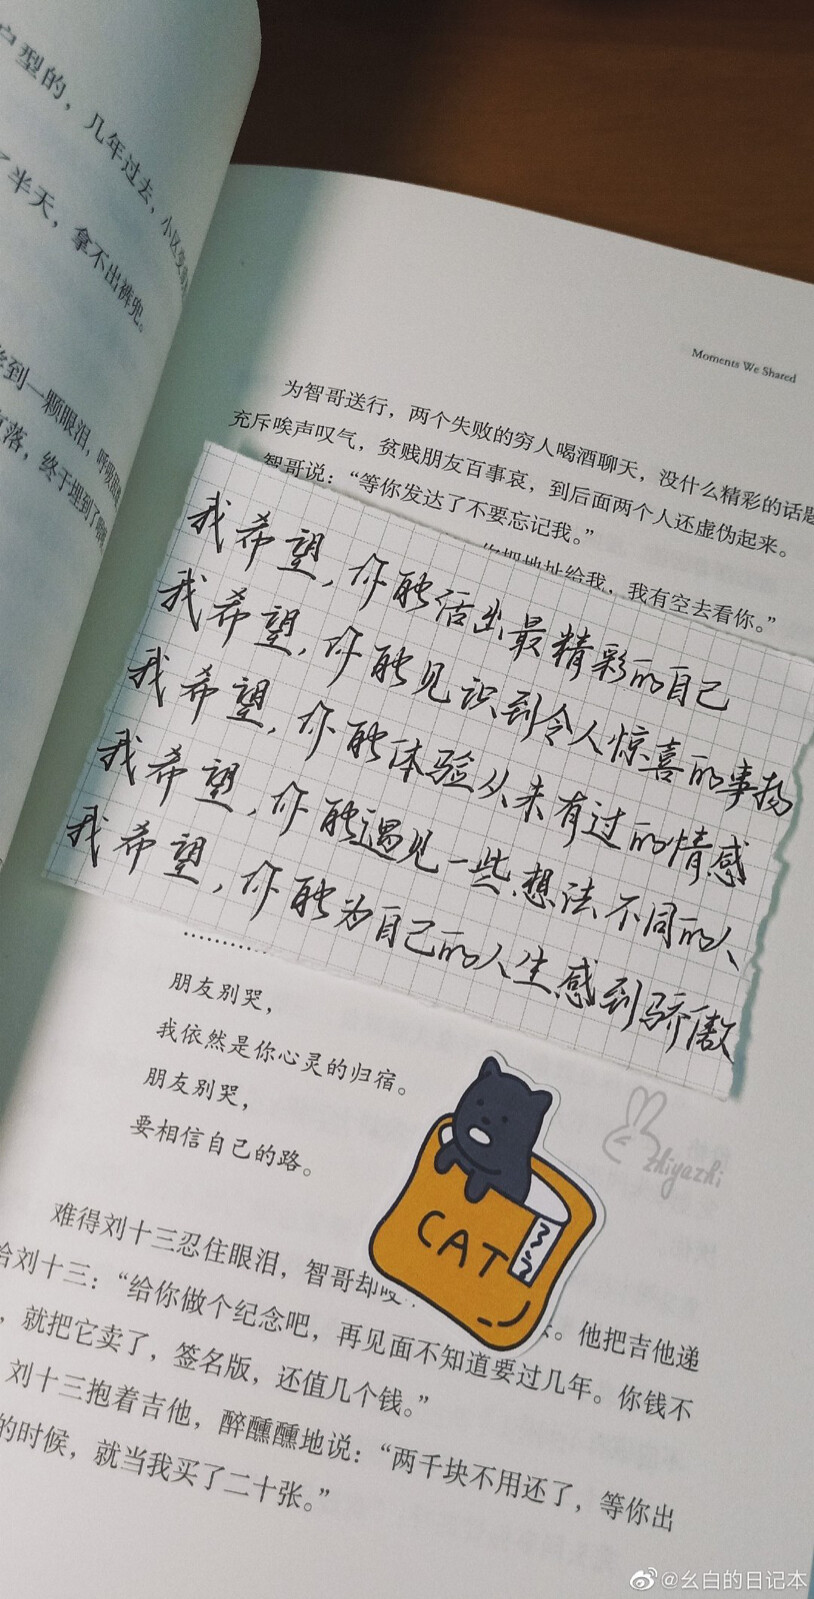 户型的，几年过去，小区
了半天，拿不出裤兜。
到一颗眼泪，呼吸
落，终于埋到了
Moments We Shared
为智哥送行，两个失败的穷人喝酒聊天，没什么精彩的话题
充斥唉声叹气，贫贱朋友百事哀，到后面两个人还虚伪起来。
智哥说：“等你发达了不要忘记我。”
你把地址给我，我有空去看你。”
我希望，你能活出最精彩的自己
我希望，你能见识到令人惊喜的事物
我希望，你能体验从未有过的情感
我希望，你能遇见一些想法不同的人
我希望，你能为自己的人生感到骄傲
…………
朋友别哭，
我依然是你心灵的归宿。
朋友别哭，
要相信自己的路。
CAT
zhiyazhi
难得刘十三忍住眼泪，智哥却
给刘十三：“给你做个纪念吧，再见面不知道要过几年。你钱不
。他把吉他递
，就把它卖了，签名版，还值几个钱。”
刘十三抱着吉他，醉醺醺地说：“两千块不用还了，等你出
的时候，就当我买了二十张。”
@幺白的日记本